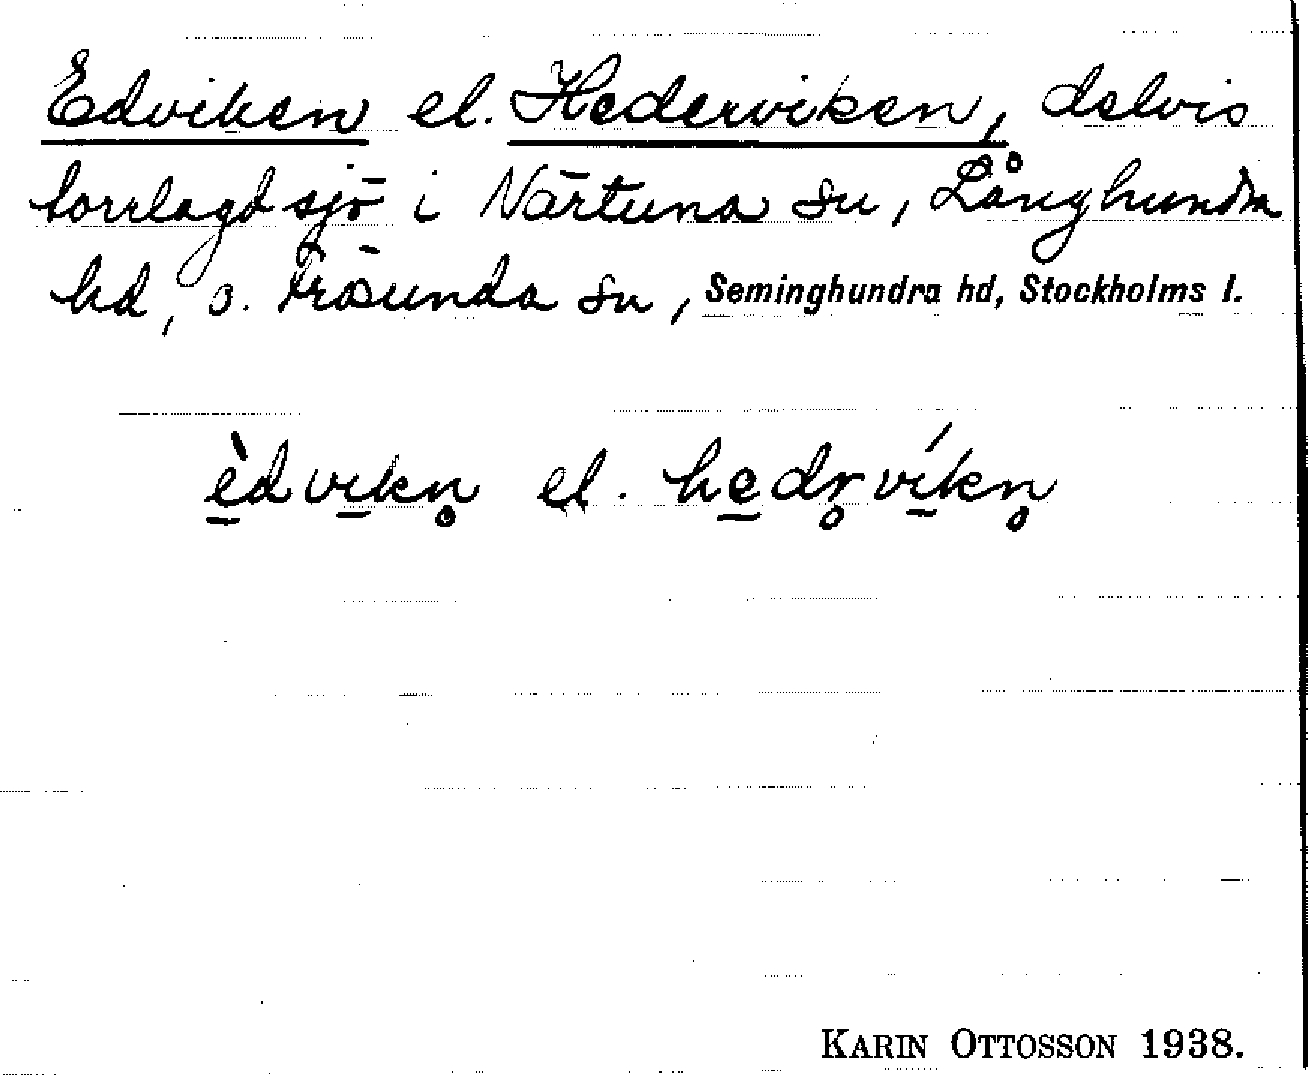 Edviken el. Hederviken, delvis
torrlagd sjö i Närtuna sn, Långhundra
hd, o. Frösunda sn, Seminghundra hd, Stockholms l.
è̱dvi̱kn̥ el. he̱dr̥ví̱kn̥
KARIN OTTOSSON 1938.